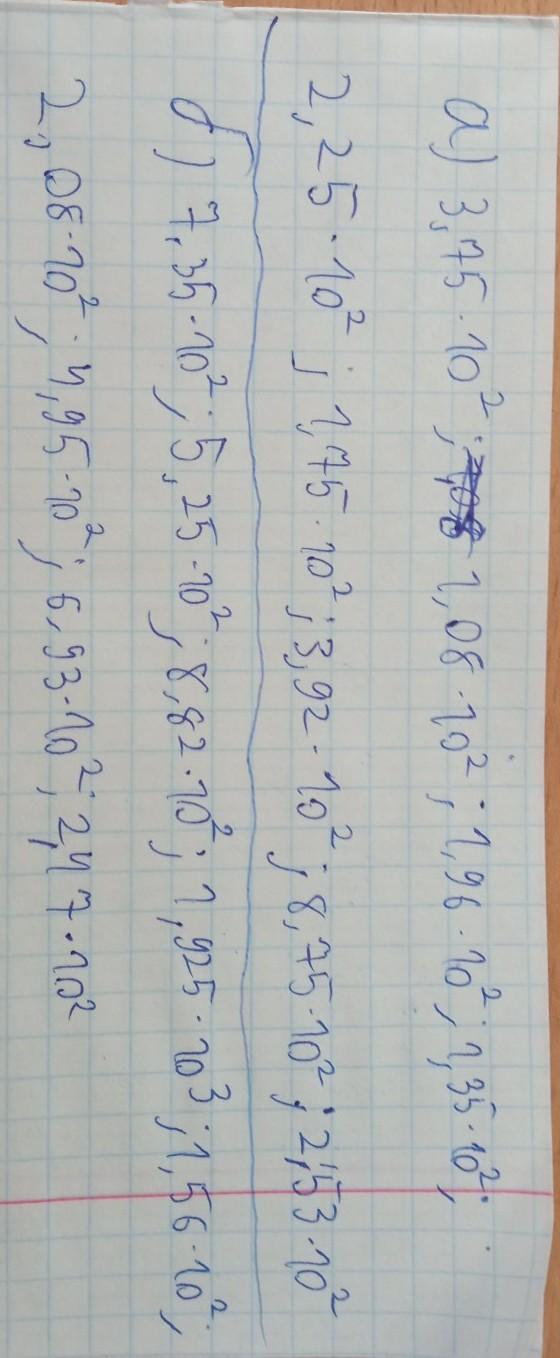 а) 3,75·10²; 1,08·10²; 1,96·10²; 1,35·10²;
2,25·10²; 1,75·10²; 3,92·10²; 8,75·10²; 2,53·10²
б) 7,35·10²; 5,25·10²; 8,82·10²; 1,925·10³; 1,56·10²;
2,08·10²; 4,95·10²; 6,93·10²; 2,47·10²